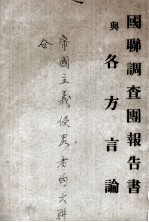 國聯調查團報告書
與各方言論
帝國主義侵畧者的大聯
合